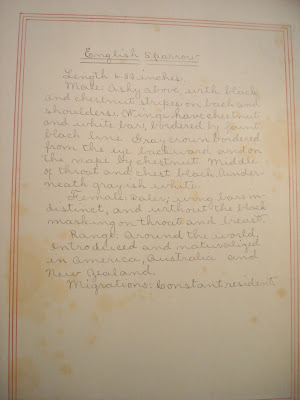 English Sparrow
Length 6.33 inches.
Male: Ashy above, with black
and chestnut stripes on back and
shoulders. Wings have chestnut
and white bar, bordered by faint
black line. Gray crown bordered
from the eye backward and on
the nape by chestnut. Middle
of throat and chest black. Under-
neath grayish white.
Female: Paler; wing bars in-
distinct, and without the black
marking on throat and breast.
Range: Around the world,
Introduced and naturalized
in America, Australia and
New Zealand.
Migrations: Constant resident.